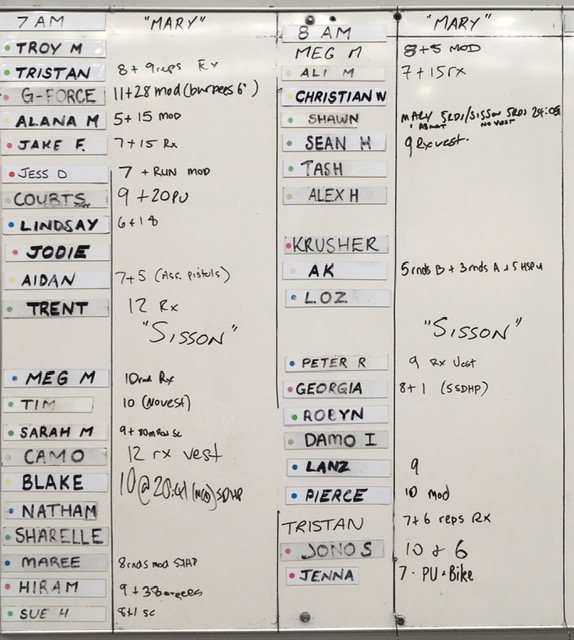 7 AM "MARY"
TROY M
TRISTAN 8 + 9 reps Rx
G-FORCE 11+28 mod (burpees 6")
ALANA M 5 + 15 mod
JAKE F. 7 + 15 Rx
JESS D 7 + RUN MOD
COURTS 9 + 20PU
LINDSAY 6+18
JODIE
AIDAN 7+5 (Ass. pistols)
TRENT 12 Rx
"SISSON"
MEG M 10rnd Rx
TIM 10 (NOVEST)
SARAH M 9 + 80m Run Sc
CAMO 12 rx vest
BLAKE 10 @ 20:41 (mod) SDHP
NATHAM
SHARELLE
MAREE 8rnds mod SDHP
HIRAM 9 + 3 Burpees
SUE H 8+1 sc
8 AM "MARY"
MEG M 8+5 MOD
ALI M 7 + 15 rx
CHRISTIAN W
SHAWN MARY 5RDS/SISSON 5RDS
NO VEST
SEAN H 9 Rx vest.
TASH
ALEX H
KRUSHER
AK 5 rnds B + 3 rnds A + 5 HSPU
LOZ
"SISSON"
PETER R 9 Rx Vest
GEORGIA 8+1 (SSDHP)
ROBYN
DAMO I
LANZ 9
PIERCE 10 mod
TRISTAN 7+6 reps Rx
JONO S 10 + 6
JENNA 7 · PU + Bike